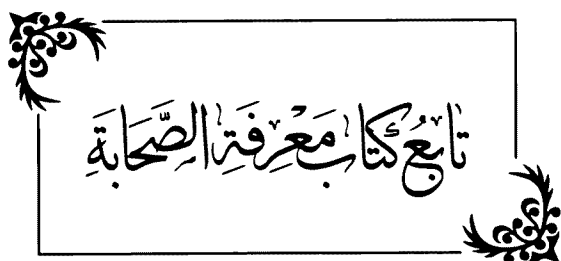 تَابِعُ كِتَابِ مَعْرِفَةِ الصَّحَابَةِ